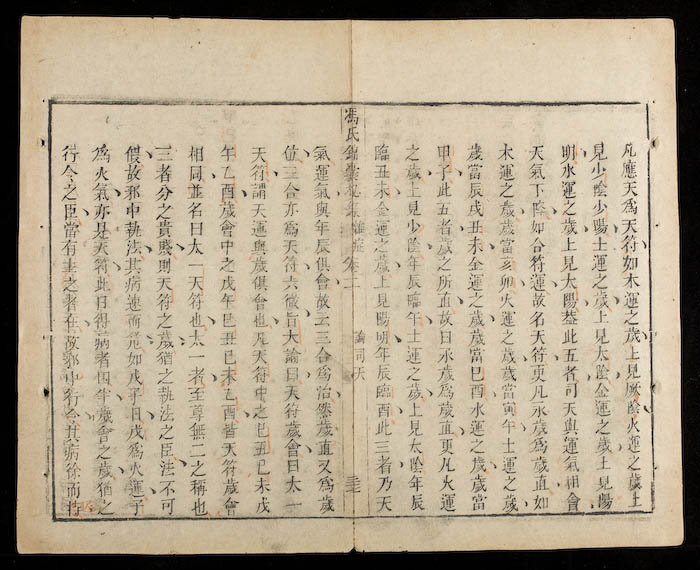 凡應天為天符如木運之歲上見厥陰火運之歲上
見少陰少陽土運之歲上見太陰金運之歲上見陽
明水運之歲上見太陽葢此五者司天與運氣相會
天氣下降如合符運故名天符更凡承歲為歲直如
木運之歲歲當亥卯火運之歲歲當寅午土運之歲
歲當辰戌丑未金運之歲歲當巳酉水運之歲歲當
甲子此五者歲之所直故曰承歲為歲直更凡火運
之歲上見少陰年辰臨午土運之歲上見太陰年辰
臨丑未金運之歲上見陽明年辰臨酉此三者乃天
馮氏錦囊秘錄 雜症 卷二 論司天
氣運氣與年辰俱會故云三合為治然歲直又為歲
位三合亦為天符六微旨大論曰天符歲會曰太一
天符謂天運與歲俱會也凡天符中之己丑己未戊
午乙酉歲會中之戊午己丑己未乙酉皆天符歲會
相同並名曰太一天符也太一者至尊無二之稱也
三者分之貴賤則天符之歲猶之執法之臣法不可
偎故邪中執法其病速而危如戊子日戊為火運子
為火氣亦是天符此日得病者困半歲會之歲猶之
行令之臣當有害之者在故邪中行令其病徐而持